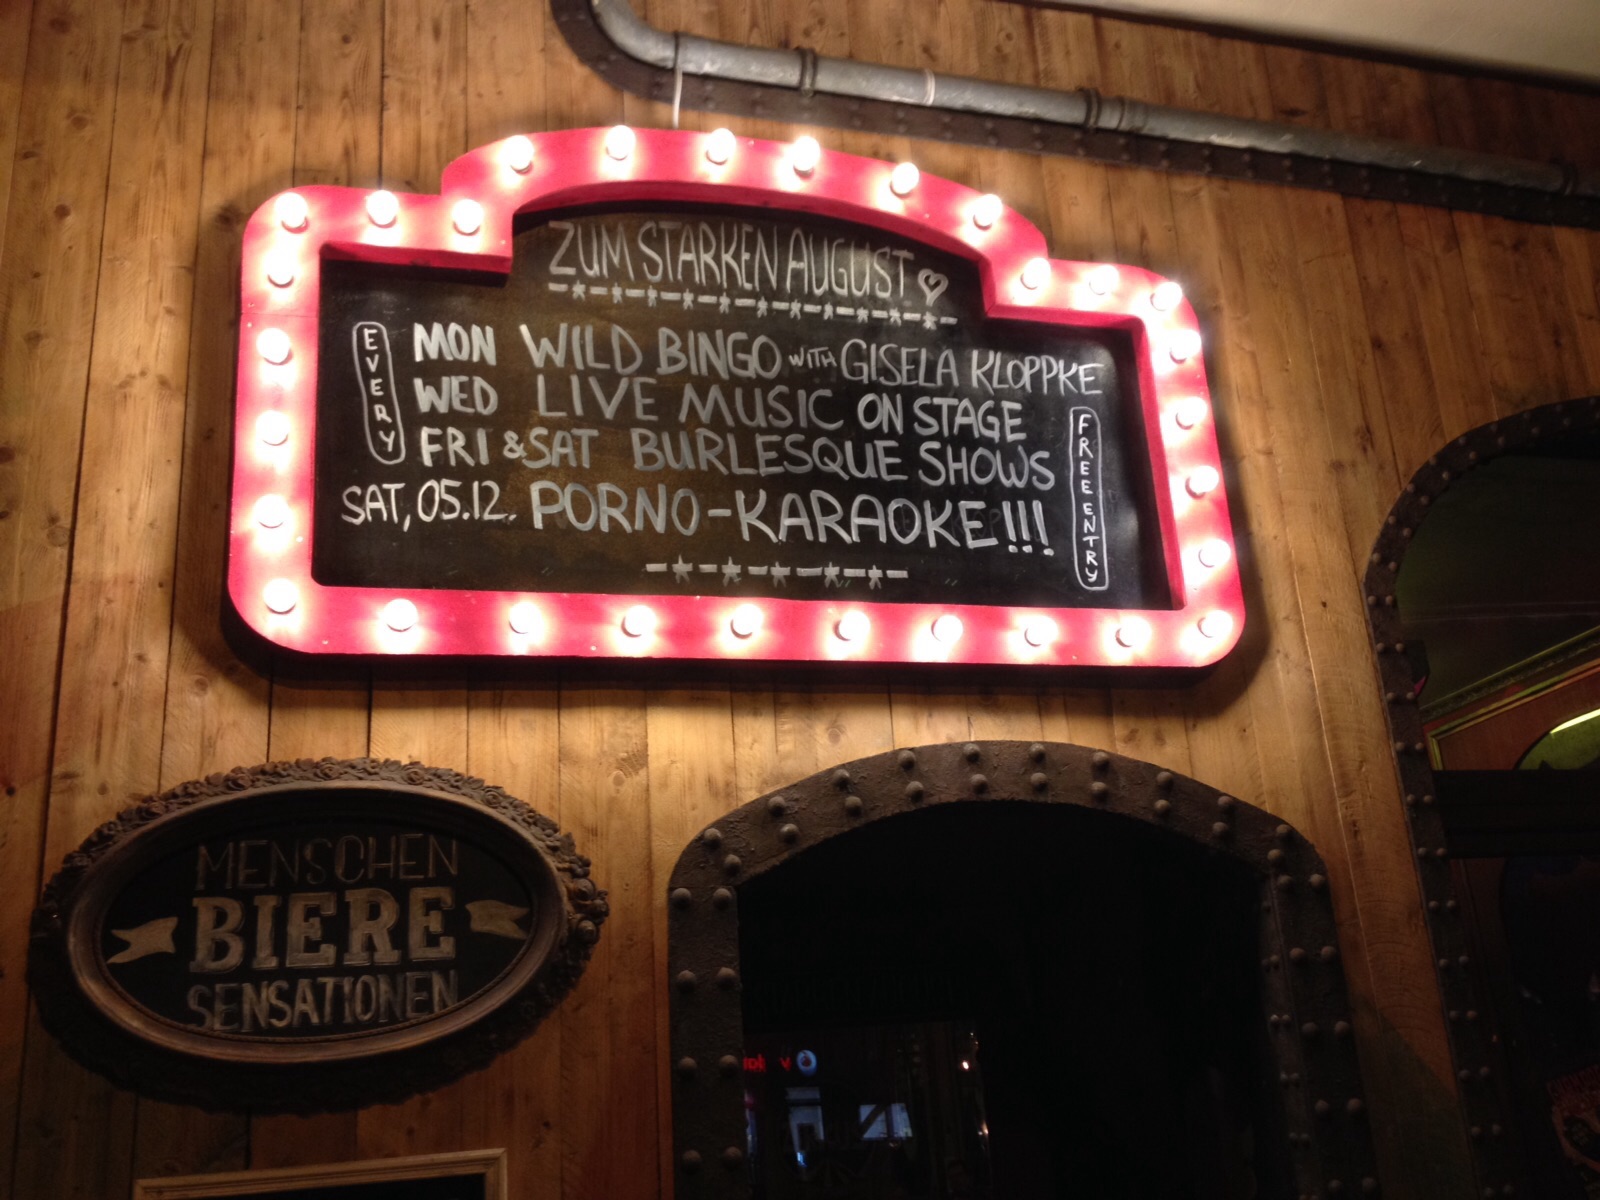 ZUM STARKEN AUGUST
EVERY
MON WILD BINGO WITH GISELA KLOPPKE
WED LIVE MUSIC ON STAGE
FRI & SAT BURLESQUE SHOWS
SAT, 05.12. PORNO-KARAOKE!!!
FREE ENTRY
MENSCHEN
BIERE
SENSATIONEN